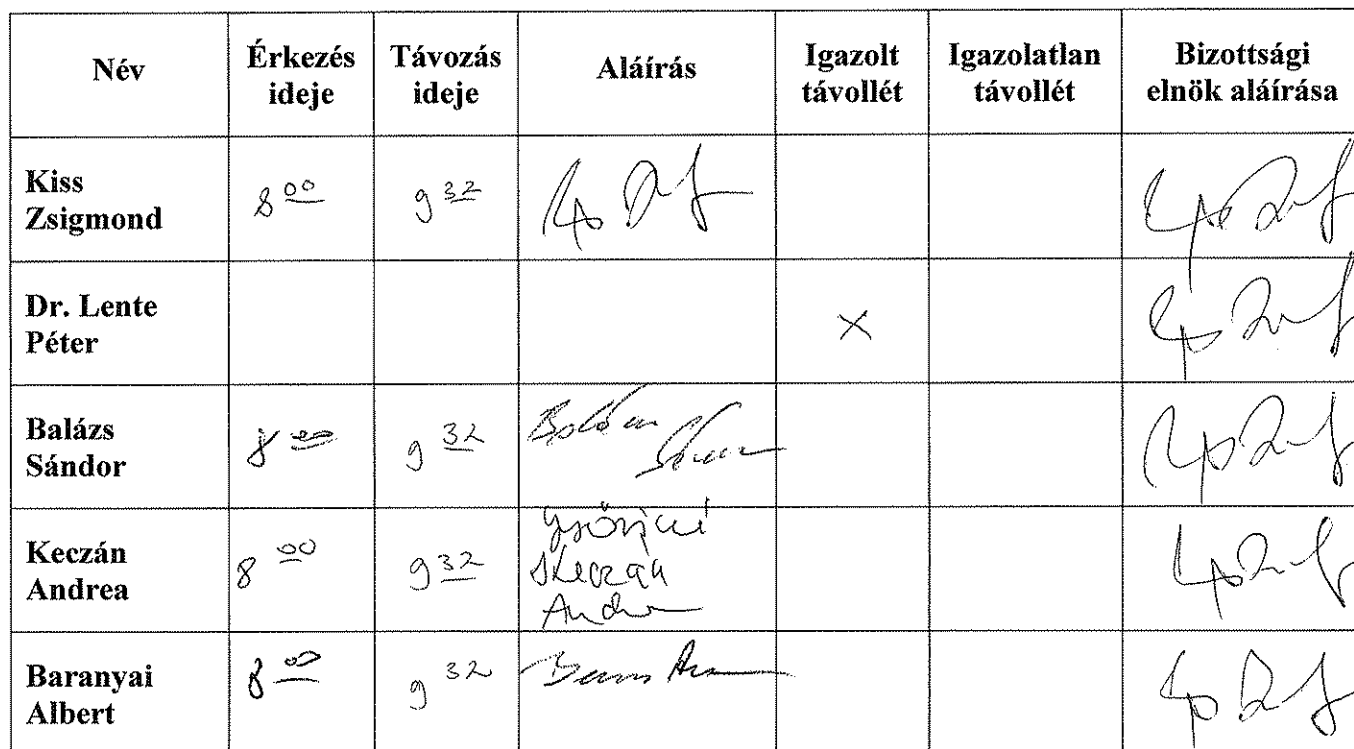 Név
Érkezés
ideje
Távozás
ideje
Aláírás
Igazolt
távollét
Igazolatlan
távollét
Bizottsági
elnök aláírása
Kiss
Zsigmond
8 00
9 32
Dr. Lente
Péter
X
Balázs
Sándor
8 00
9 32
Keczán
Andrea
8 00
9 32
Keczán
Andrea
Baranyai
Albert
8 00
9 32